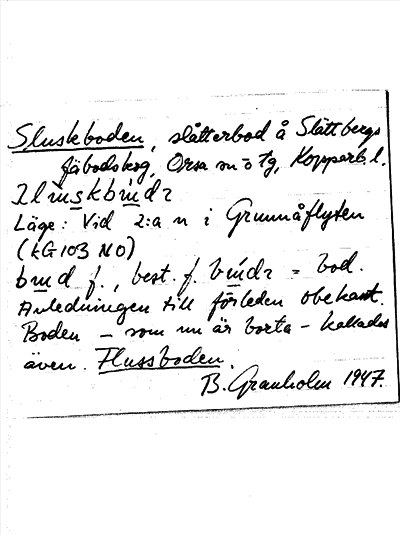 Sluskboden, slåtterbod å Slättbergs
fäbodskog, Orsa sn o tg, Kopparb. l.
Läge: Vid 2:a n i Grunnåflyten
(kG103 NO)
bud f., best. f. = bod.
Anledningen till förleden obekant.
Boden – som nu är borta – kallades
även Flussboden.
B. Granholm 1947.